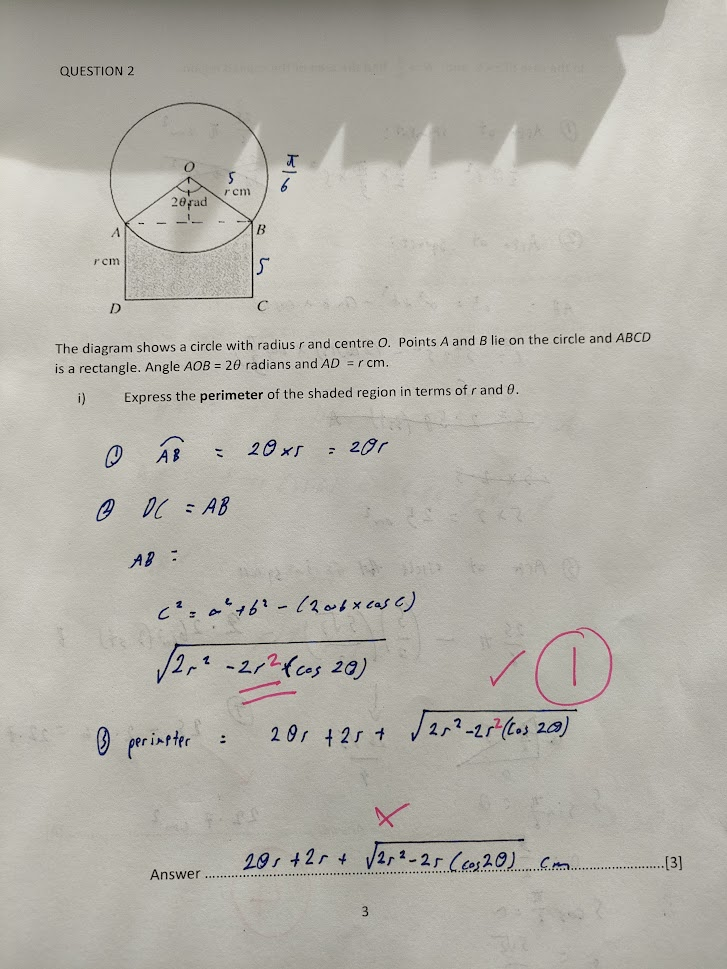 QUESTION 2
O
5
r cm
π/6
2θ rad
A
B
r cm
5
D
C
The diagram shows a circle with radius r and centre O. Points A and B lie on the circle and ABCD
is a rectangle. Angle AOB = 2θ radians and AD = r cm.
i) Express the perimeter of the shaded region in terms of r and θ.
① AB = 2θ×r = 2θr
② DC = AB
AB =
c² = a² + b² - (2ab × cos C)
√(2r² - 2r² (cos 2θ)) ✓ 1
③ perimeter = 2θr + 2r + √(2r² - 2r² (cos 2θ))
✗
Answer 2θr + 2r + √(2r² - 2r (cos2θ)) cm [3]
3